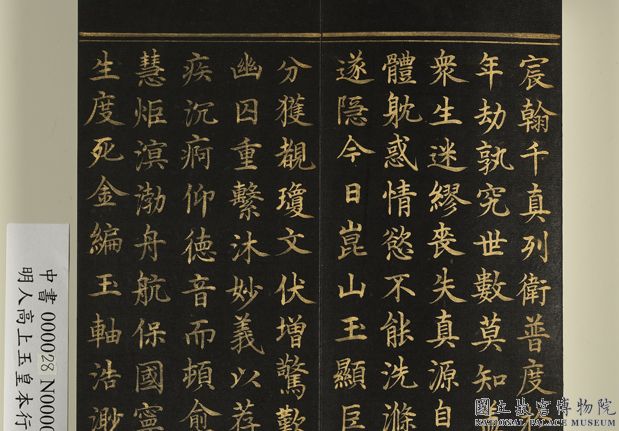 宸翰千真列衛普度
年劫孰究世數莫知
衆生迷繆喪失真源自
體躭惑情慾不能洗滌
遂隱今日崑山玉顯巨
分獲覩瓊文伏增驚歎
幽囚重繫沐妙義以荐
疾沉痾仰德音而頓愈
慧炬溟渤舟航保國寧
生度死金編玉軸浩渺
中書 000028 N0000
明人高上玉皇本行
國立故宮博物院
NATIONAL PALACE MUSEUM